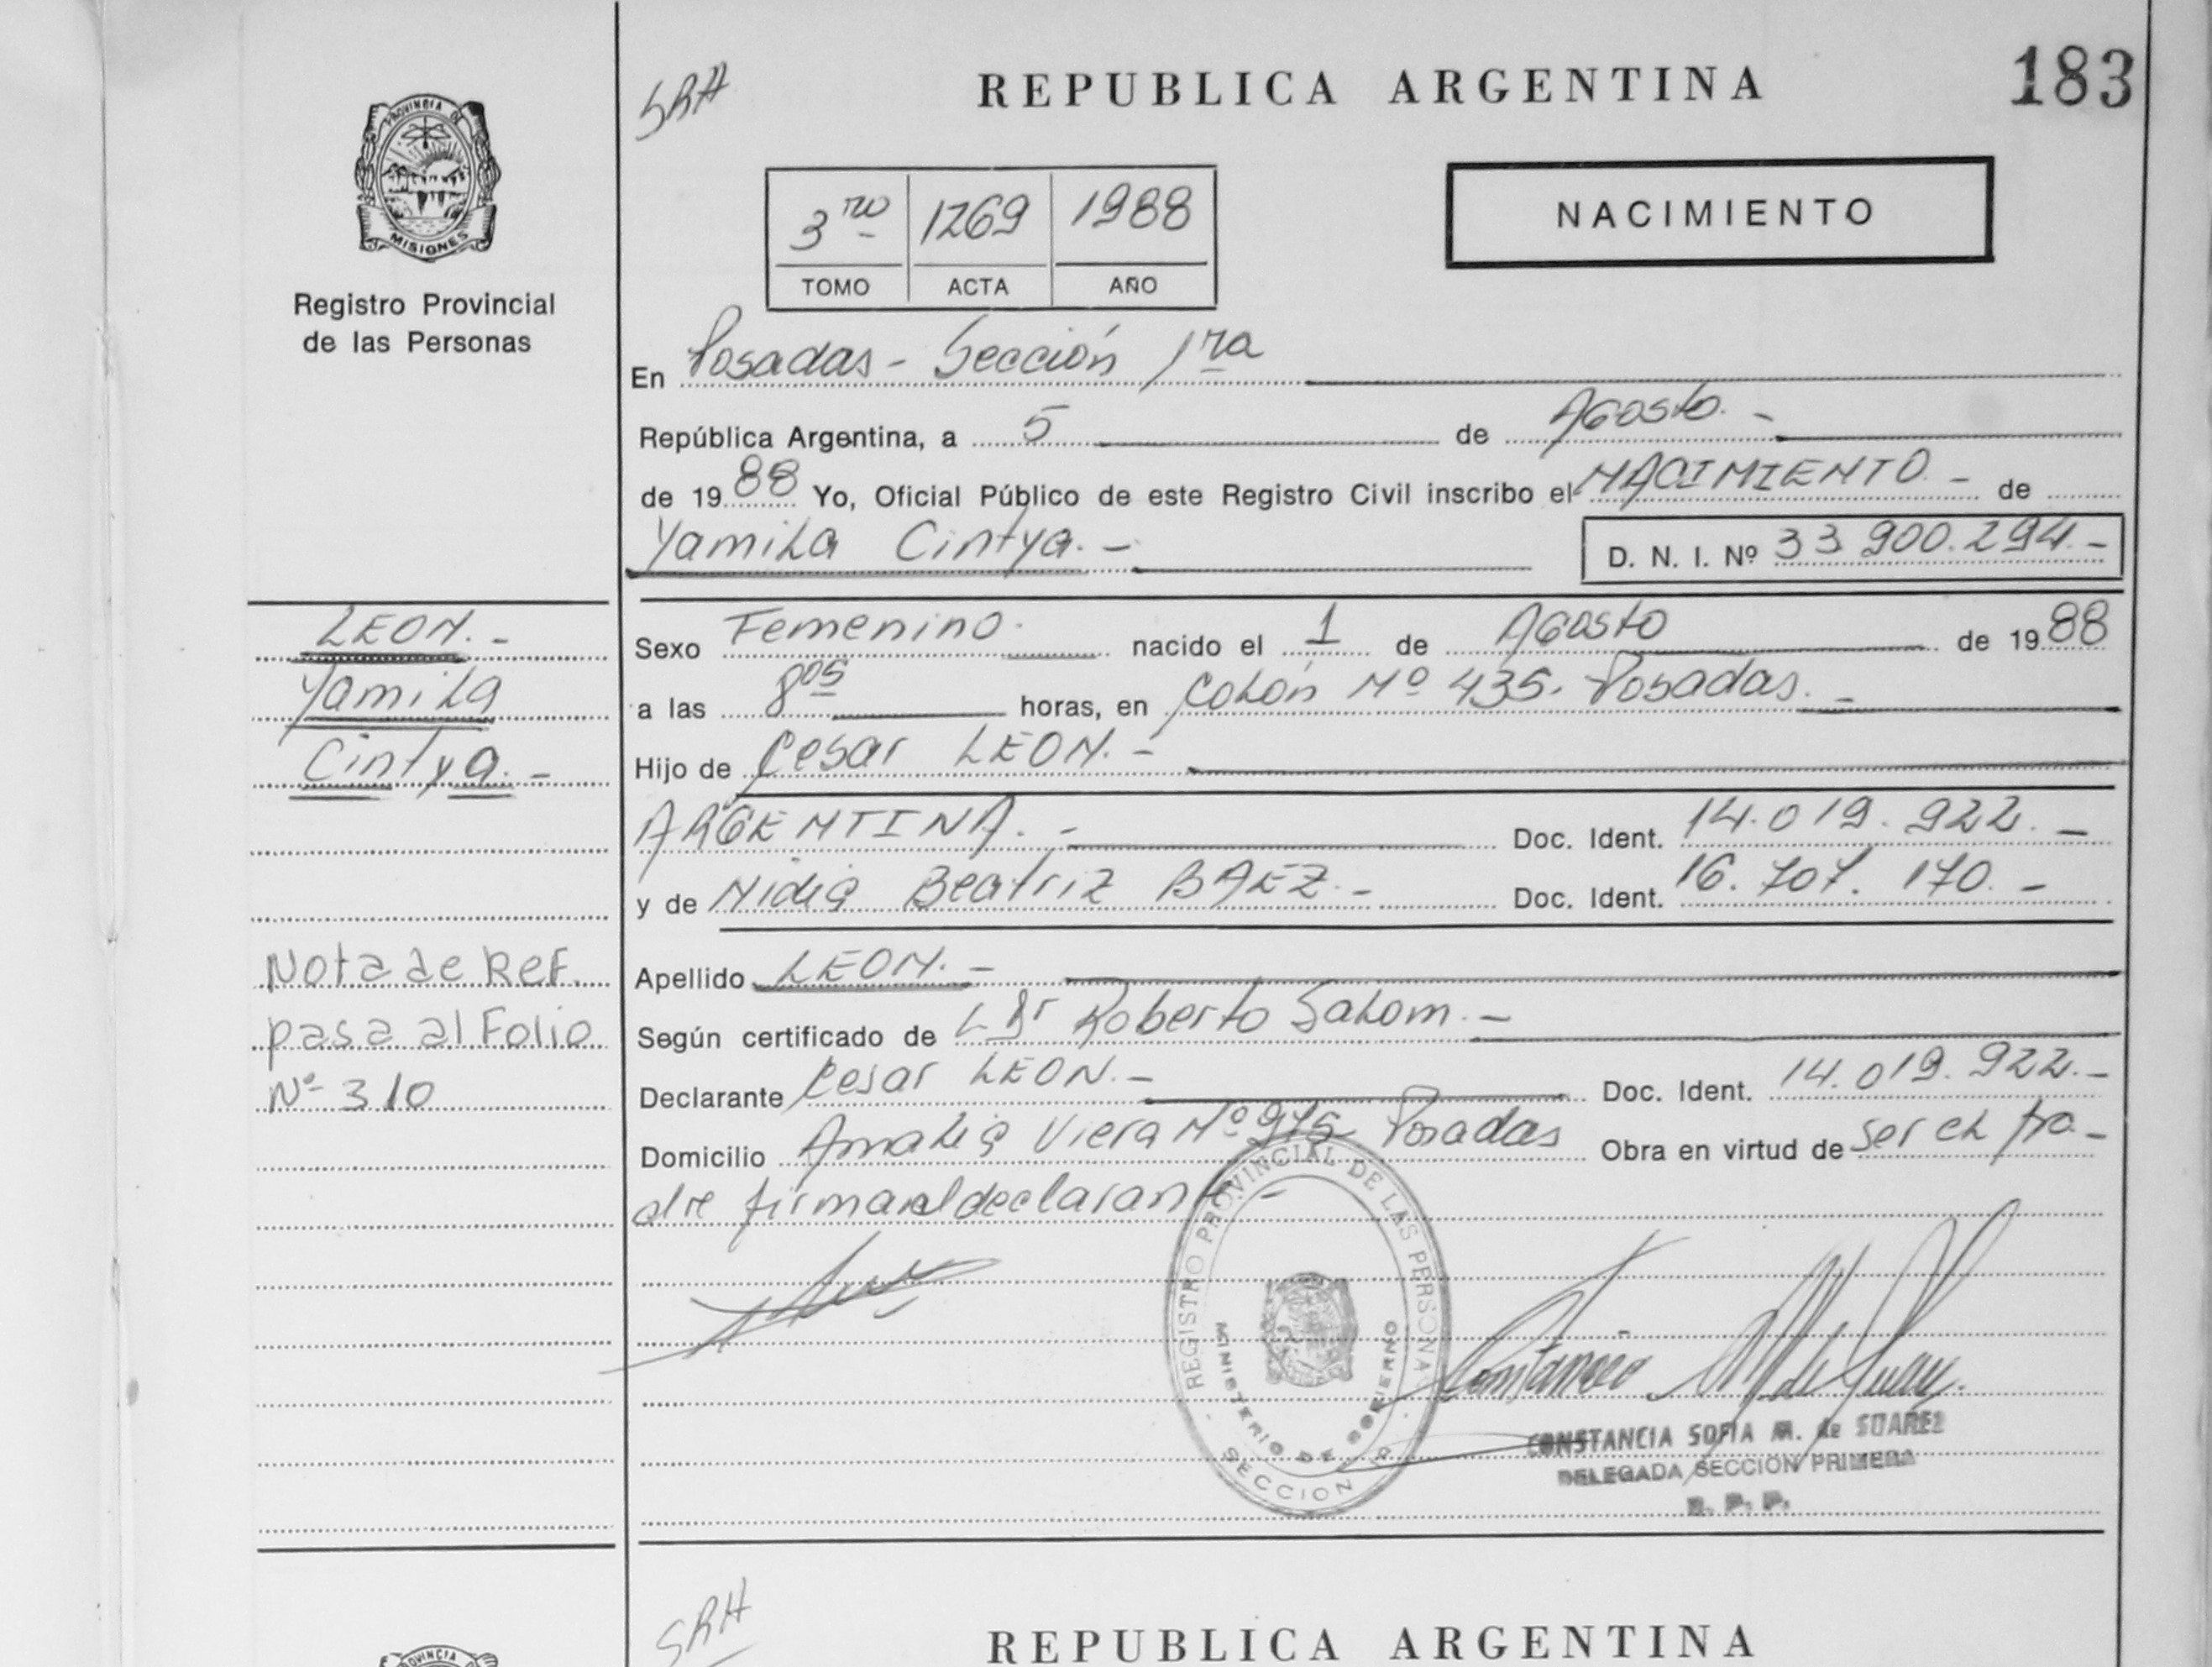 SRH
REPUBLICA ARGENTINA
183
PROVINCIA DE
MISIONES
Registro Provincial
de las Personas
3ro 1269 1988
TOMO ACTA AÑO
NACIMIENTO
En Posadas - Sección 1ra
República Argentina, a 5 de Agosto. -
de 1988 Yo, Oficial Público de este Registro Civil inscribo el NACIMIENTO - de
Yamila Cintya. -
D. N. I. Nº 33 900.294. -
LEON. -
Yamila
Cintya. -
Sexo Femenino. nacido el 1 de Agosto de 1988
a las 8 05 horas, en Colón Nº 435. Posadas. -
Hijo de Cesar LEON. -
ARGENTINA. - Doc. Ident. 14.019.922. -
y de Nidia Beatriz BAEZ. - Doc. Ident. 16.707.170. -
Nota de Ref.
pasa al Folio
Nº 310
Apellido LEON. -
Según certificado de L Dr Roberto Salom. -
Declarante Cesar LEON. - Doc. Ident. 14.019.922. -
Domicilio Amalia Viera Nº 975 Posadas Obra en virtud de ser el pa-
dre firma el declarante -
REGISTRO PROVINCIAL DE LAS PERSONAS
MINISTERIO DE GOBIERNO
SECCION
CONSTANCIA SOFIA M. de SUAREZ
DELEGADA SECCION PRIMERA
R. P. P.
SRH
REPUBLICA ARGENTINA
PROVINCIA